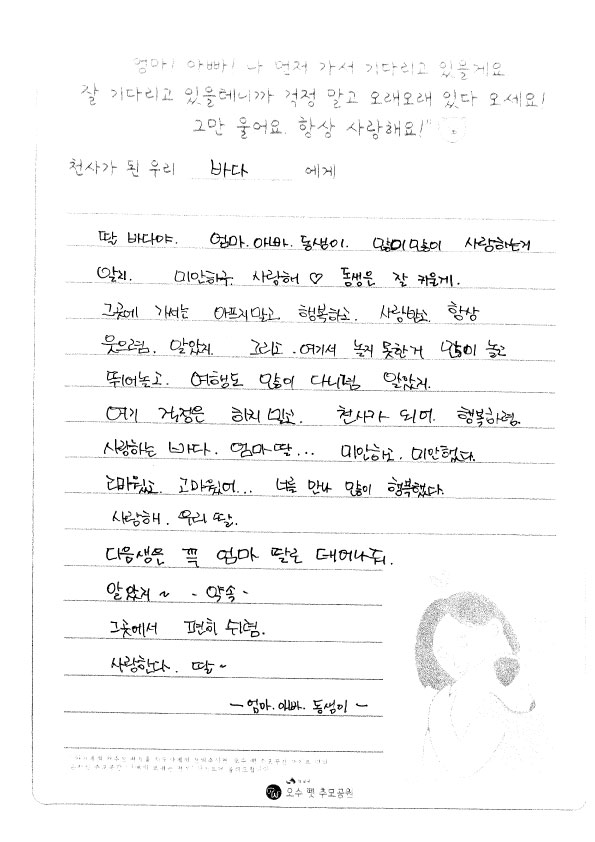 엄마! 아빠! 나 먼저 가서 기다리고 있을게요
잘 기다리고 있을테니까 걱정 말고 오래오래 있다 오세요!
그만 울어요. 항상 사랑해요!"
천사가 된 우리 바다 에게
딸 바다야. 엄마.아빠.동생이. 많이많이 사랑하는거
알지. 미안하구. 사랑해 ♡ 동생은 잘 키울게.
그곳에 가서는 아프지말고. 행복하고. 사랑받고. 항상
웃으렴. 알았지. 그리고.여기서 놀지 못한거 많이 놀고
뛰어놀고. 여행도 많이 다니렴 알았지.
여기 걱정은 하지말고. 천사가 되어. 행복하렴.
사랑하는 바다. 엄마딸... 미안하고. 미안했다.
고마웠고. 고마웠어... 너를 만나 많이 행복했다.
사랑해. 우리 딸.
다음생은 꼭 엄마 딸로 태어나줘.
알았지~ - 약속 -
그곳에서 편히 쉬렴.
사랑한다. 딸~
- 엄마.아빠. 동생이 -
오수 펫 추모공원